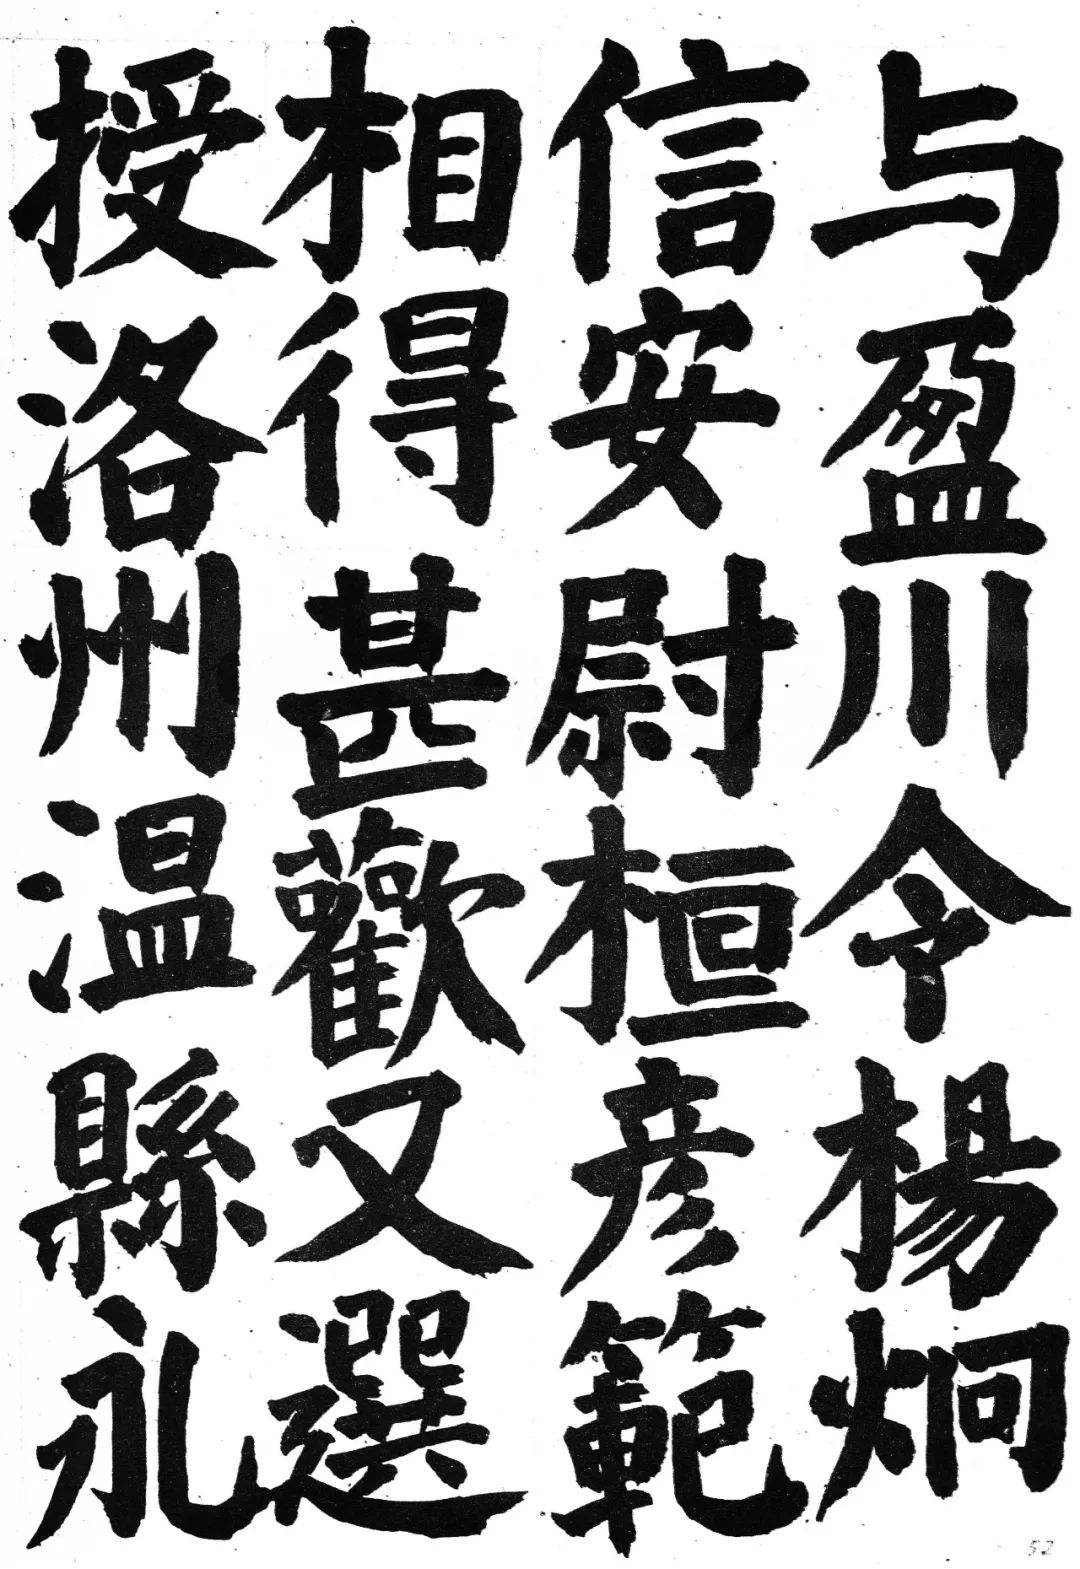 与盈川令楊炯
信安尉桓彦範
相得甚歡又選
授洛州温縣永
52